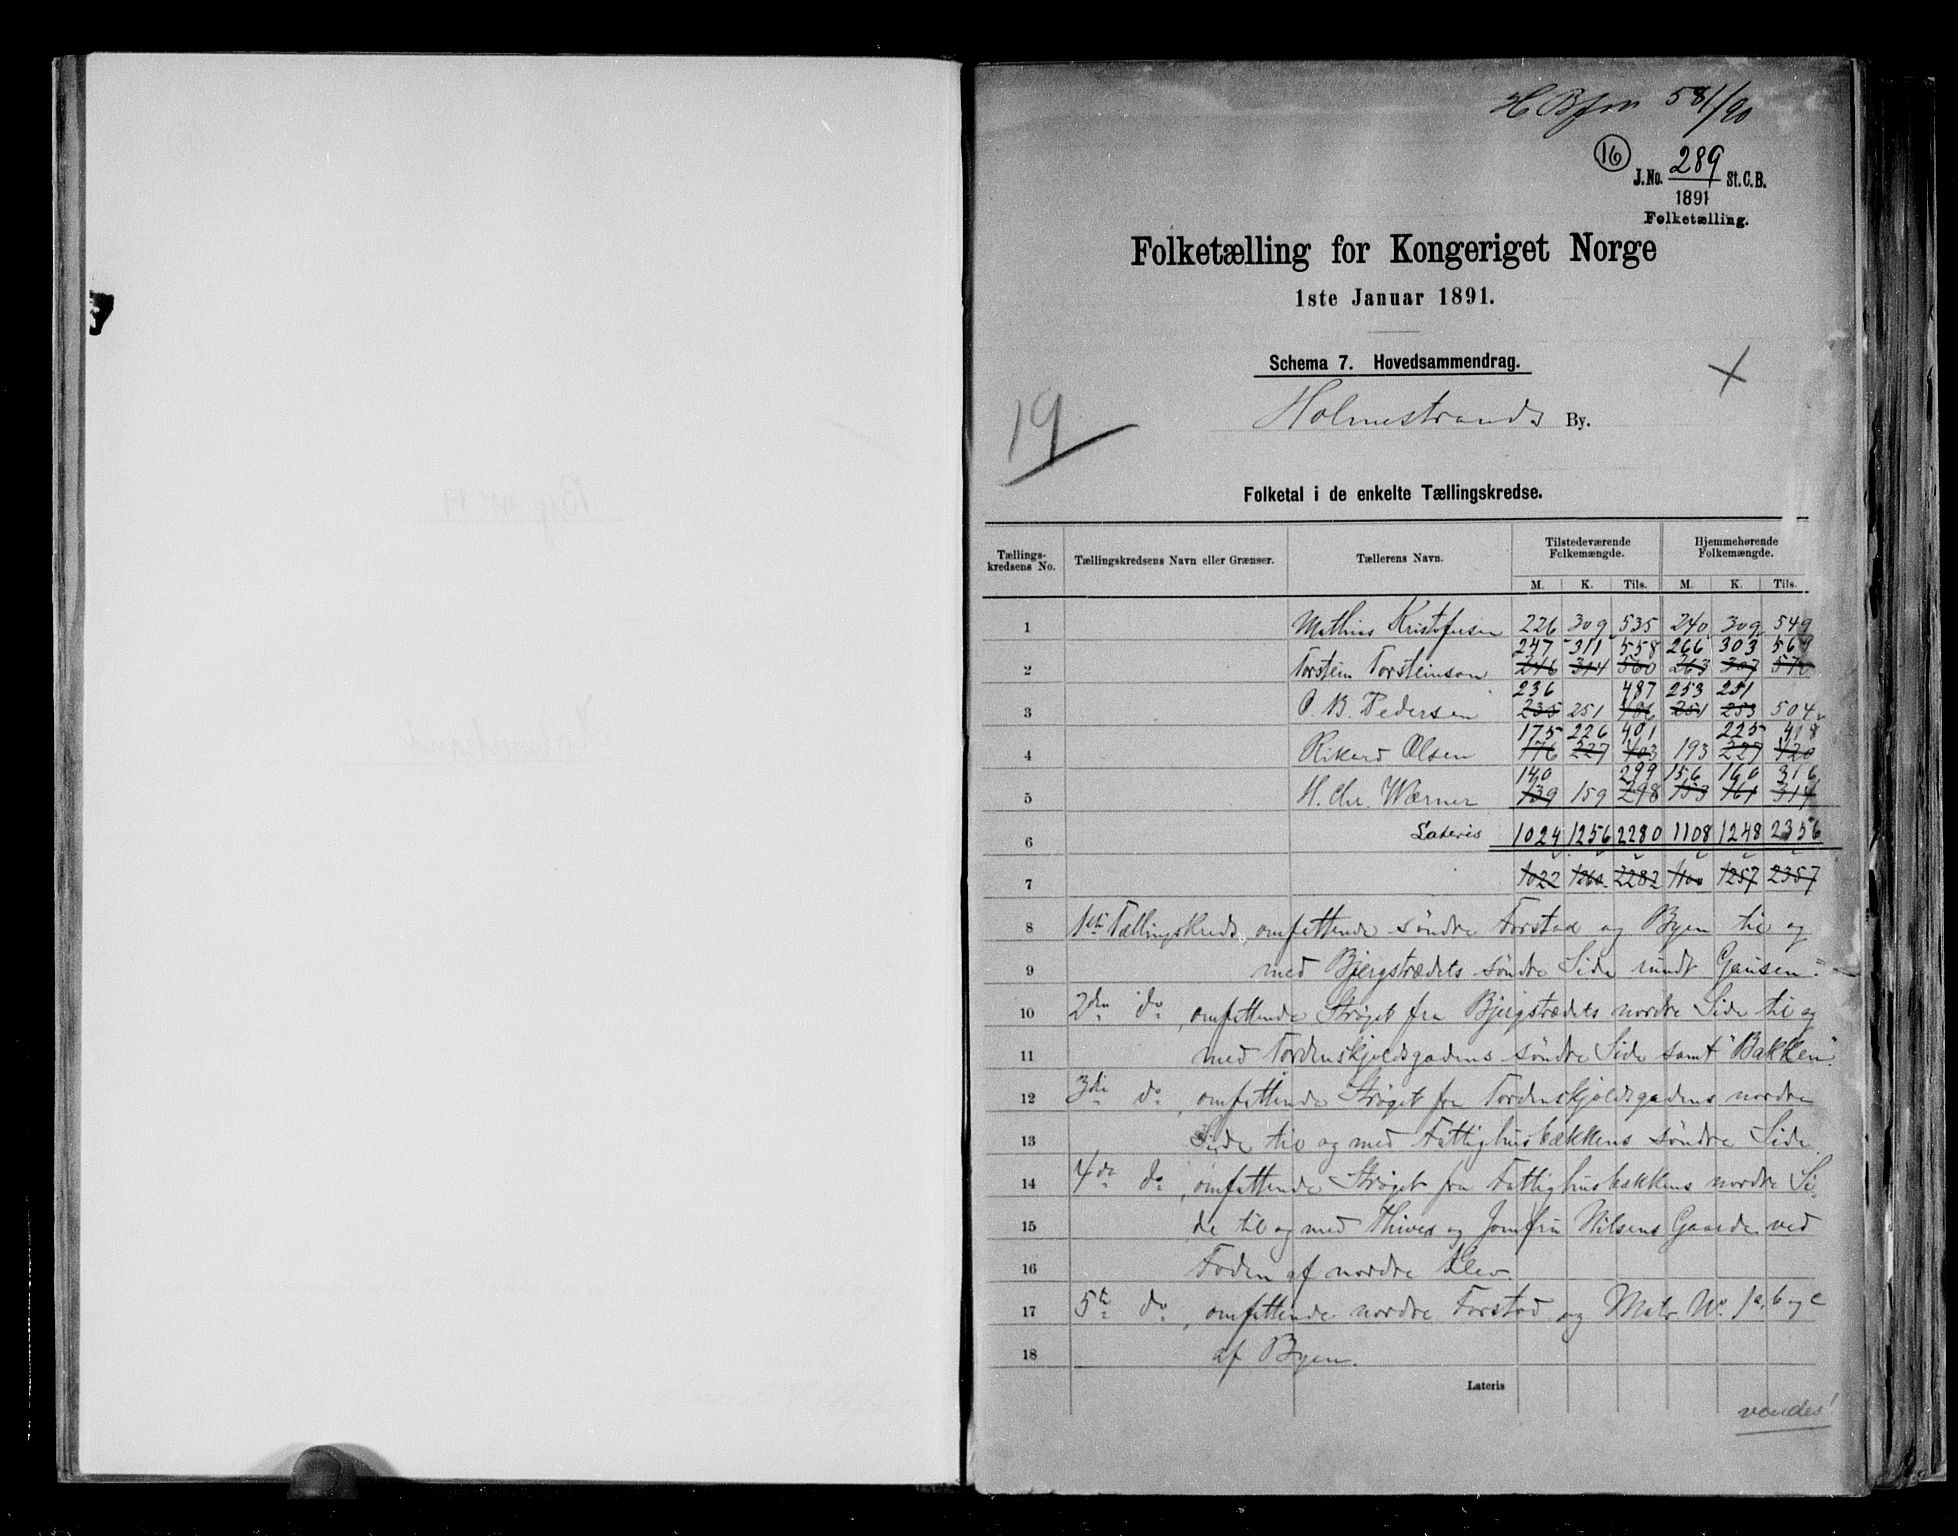 H Bfm 581/90
16
J.No. 289 St.C.B.
1891
Folketælling.
Folketælling for Kongeriget Norge
1ste Januar 1891.
Schema 7. Hovedsammendrag.
19
Holmestrands By.
Folketal i de enkelte Tællingskredse.
Tællingskredsens No. Tællingskredsens Navn eller Grænser. Tællerens Navn. Tilstedeværende Folkemængde. Hjemmehørende Folkemængde.
M. K. Tils. M. K. Tils.
1 Mathias Kristofersen 226 309 535 240 309 549
247 311 558 266 303 569
2 Torstein Torsteinson 246 314 560 263 307 570
236 487 253 251
3 O. B. Pedersen 235 251 486 251 253 504
175 226 401 225 418
4 Rikard Olsen 176 227 403 193 227 420
140 299 156 160 316
5 H. Chr. Wærner 139 159 298 153 161 314
6 Lateris 1024 1256 2280 1108 1248 2356
7 1022 1260 2282 1100 1257 2357
8 1ste Tællingskreds, omfattende søndre Forstad og Byen til og
9 med Bjergstrædets søndre Side rundt Gausen.
10 2den do, omfattende Strøget fra Bjergstrædets nordre Side til og
11 med Tordenskjoldsgadens søndre Side samt "Bakken".
12 3die do, omfattende Strøget fra Tordenskjoldsgadens nordre
13 Side til og med Fattighusbækkens søndre Side
14 4de do, omfattende Strøget fra Fattighusbækkens nordre Si-
15 de til og med Thives og Jomfru Nilsens Gaarde ved
16 Foden af nordre Klev.
17 5te do, omfattende nordre Forstad og Matr No. 1a, b og c
18 af Byen.
Lateris
vendes!